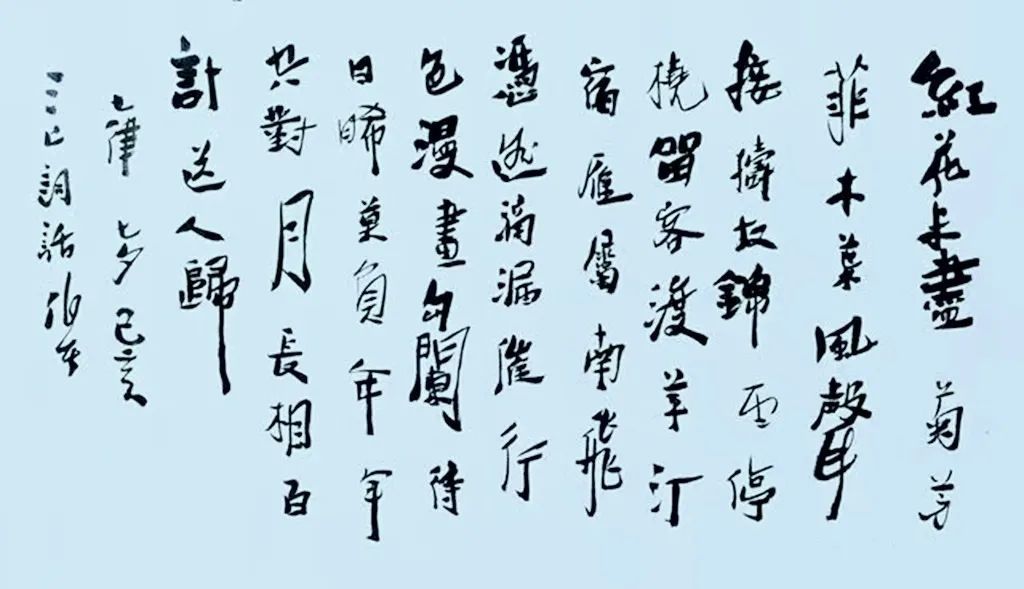 紅花未盡菊芳
菲木葉風聲
接擣衣錦雲停
橈留客渡草汀
宿雁屬南飛
憑滴漏催行
色漫畫勾闌待
日晞莫負年年
共對月長相百
計送人歸
七律 七夕 己亥
詞話